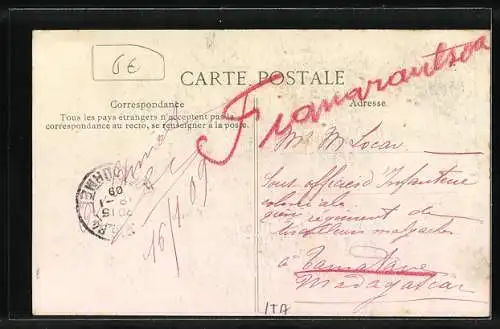 6€
CARTE POSTALE
Correspondance
Tous les pays étrangers n'acceptent pas la
correspondance au recto, se renseigner à la poste.
Adresse
Fianarantsoa
M. Locar
Sous officier d'Infanterie
coloniale
régiment de
tirailleurs malgaches
à Tamatave
Madagascar
16/1 09
09
ITA